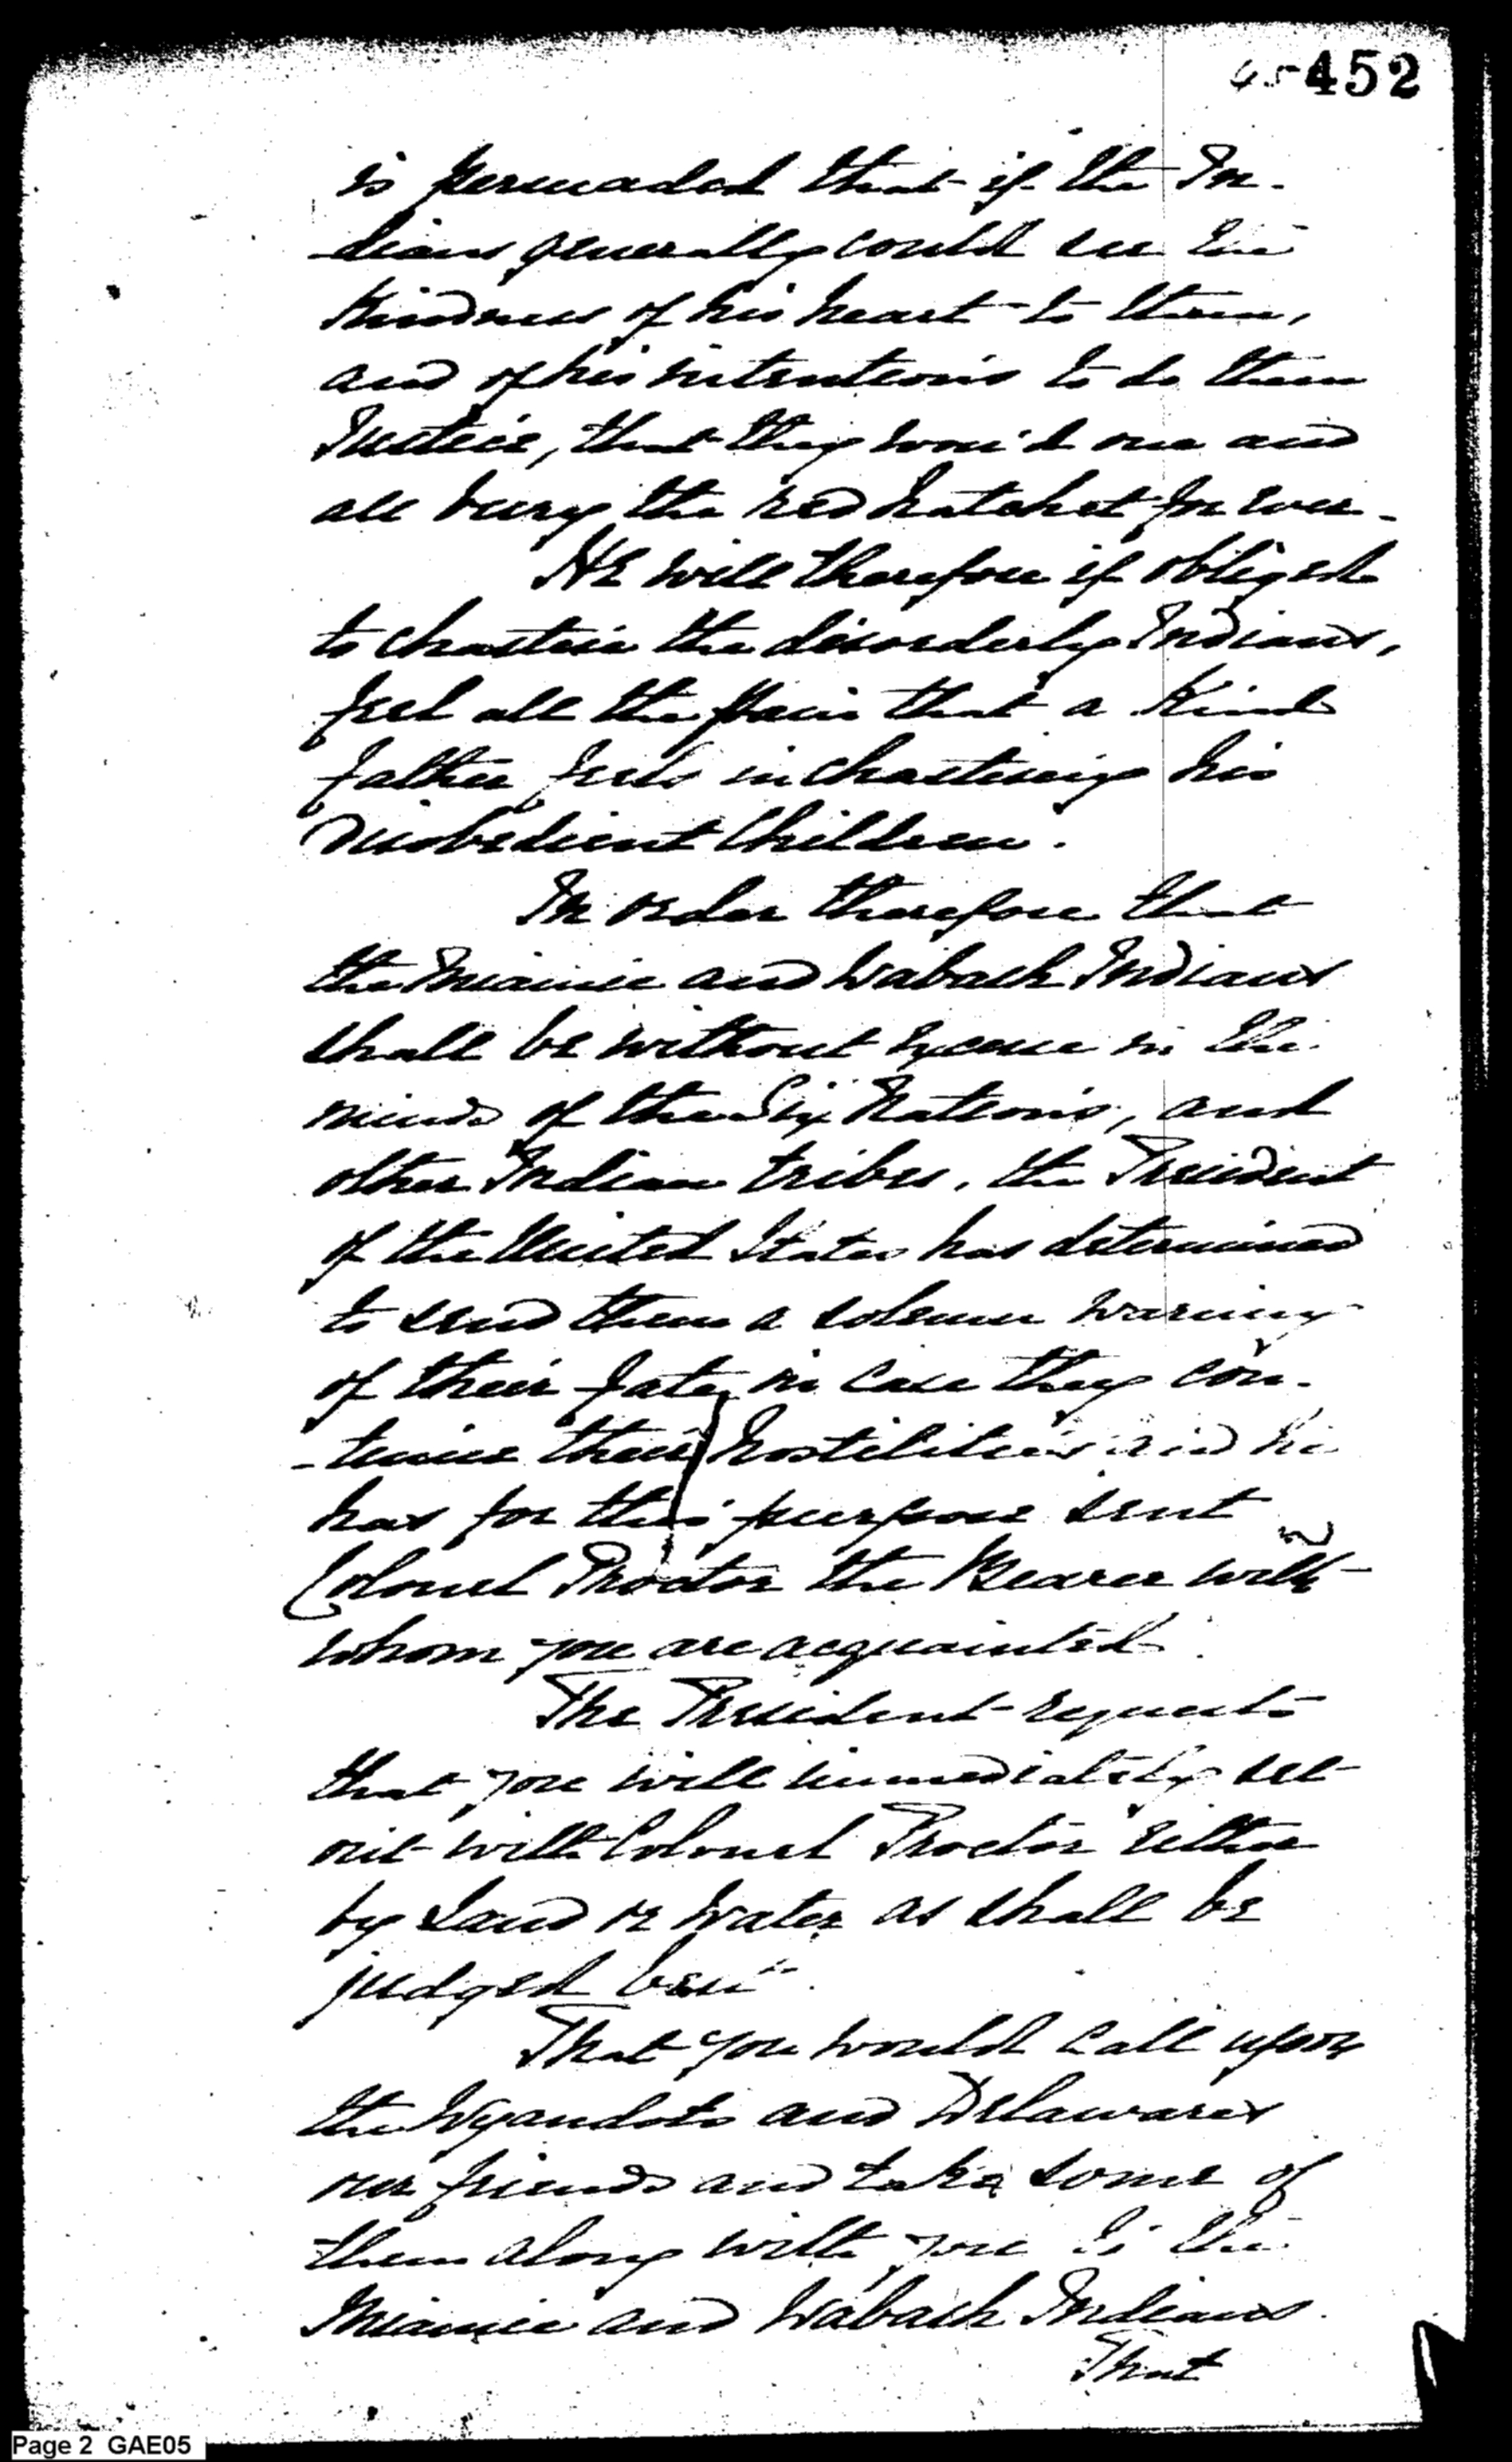 65 452
is persuaded that if the In-
-dians generally could see the
Kindness of his heart to them,
and of his intentions to do them
Justice, that they wou'd one and
all bury the red hatchet for ever.
He will therefore if obliged
to chastise the disorderly Indians,
feel all the pain that a kind
father feels in chastising his
disobedient Children.
In order therefore that
the Miamie and Wabash Indians
shall be without excuse in the
minds of the Six Nations, and
other Indian tribes, the President
of the United States has determined
to send them a solemn warning
of their fate, in case they con-
-tinue their hostilities and he
has for this purpose sent
Colonel Proctor the Bearer with
whom you are acquainted.
The President requests
that you will immediately set
out with Colonel Proctor either
by Land or Water as shall be
judged best.
That you would call upon
the Wyandots and Delawares
our friends and take some of
them along with you to the
Miamie and Wabash Indians.
That
Page 2 GAE05